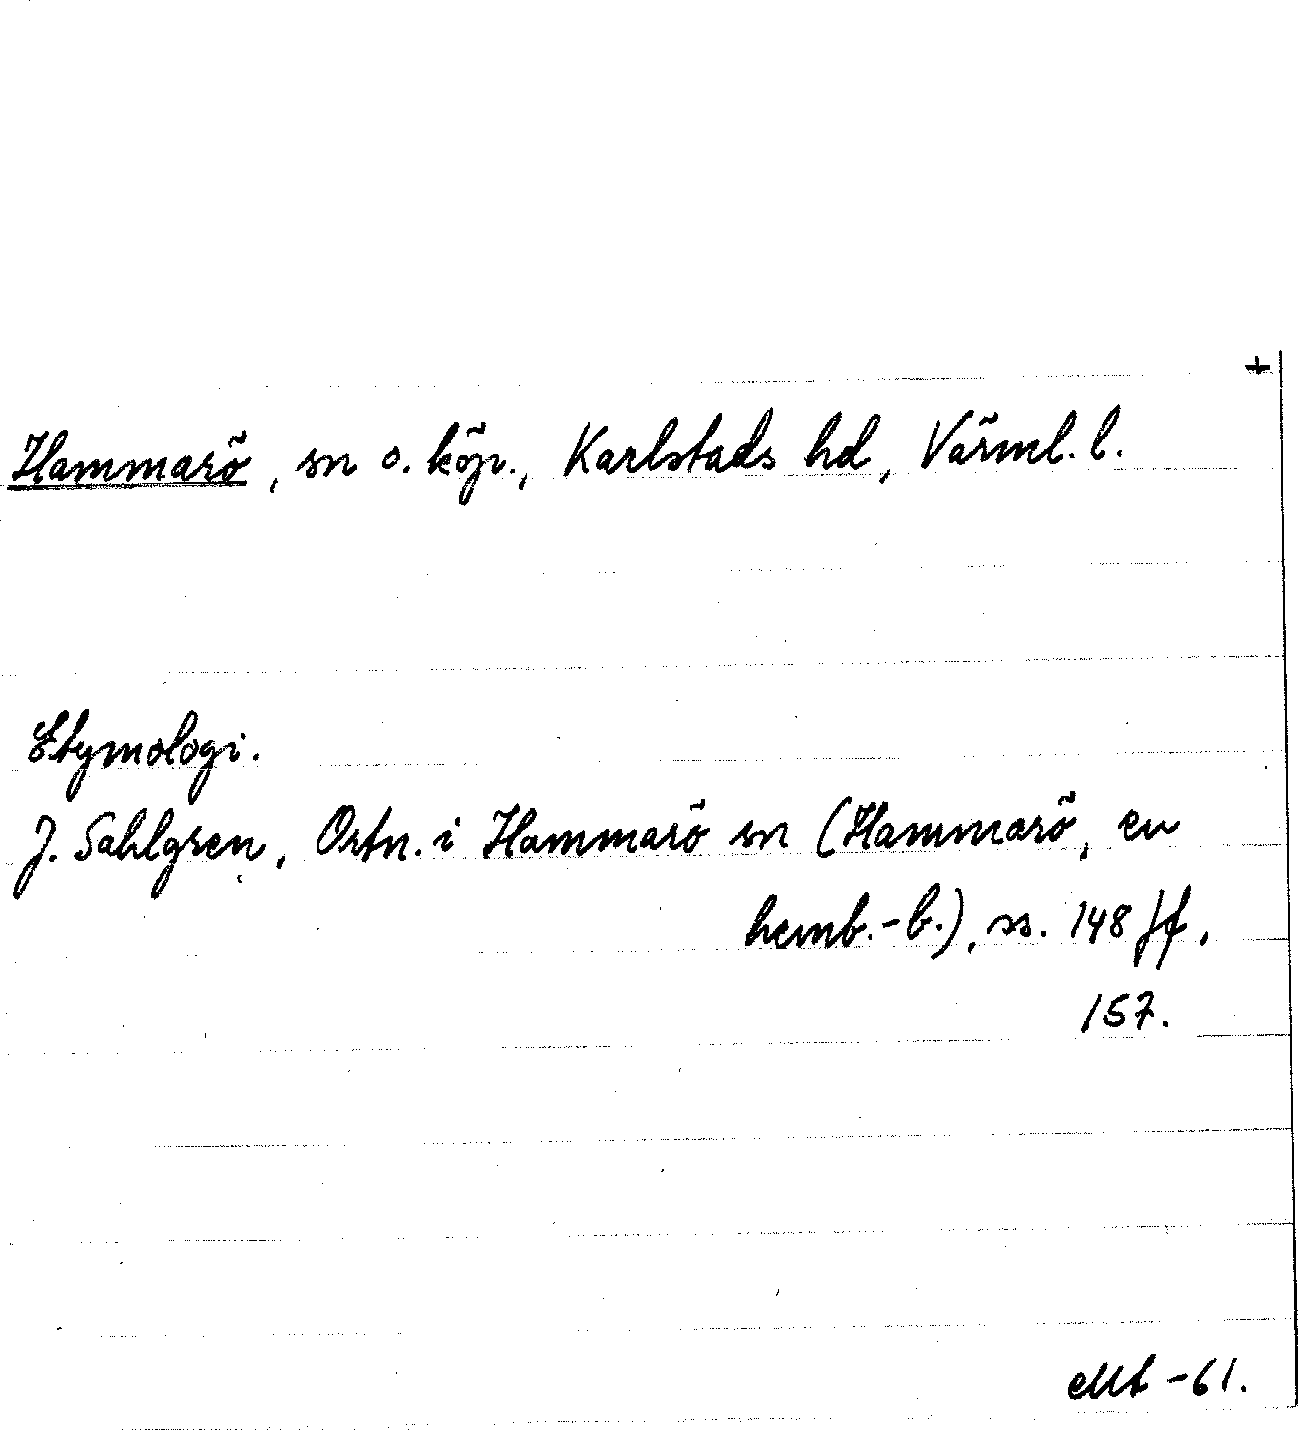 +
Hammarö, sn o. köp., Karlstads hd, Värml. l.
Etymologi.
J. Sahlgren, Ortn. i Hammarö sn (Hammarö, en
hemb.-b.), ss. 148 ff,
157.
-61.